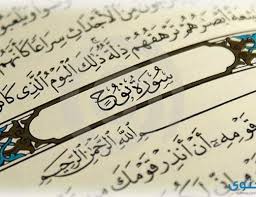 مِنَ الْأَجْدَاثِ سِرَاعًا
أَبْصَٰرُهُمْ تَرْهَقُهُمْ ذِلَّةٌ ذَٰلِكَ الْيَوْمُ الَّذِي
سُورَةُ نُوحٍ
اللَّهِ الرَّحْمَٰنِ الرَّحِيمِ
قَوْمِهِ أَنْ أَنذِرْ قَوْمَكَ